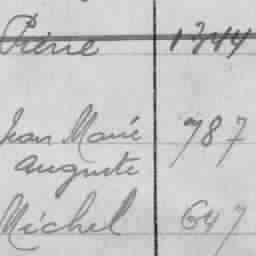 Pierre 1344
Jean Marie 787
Auguste
Michel 647